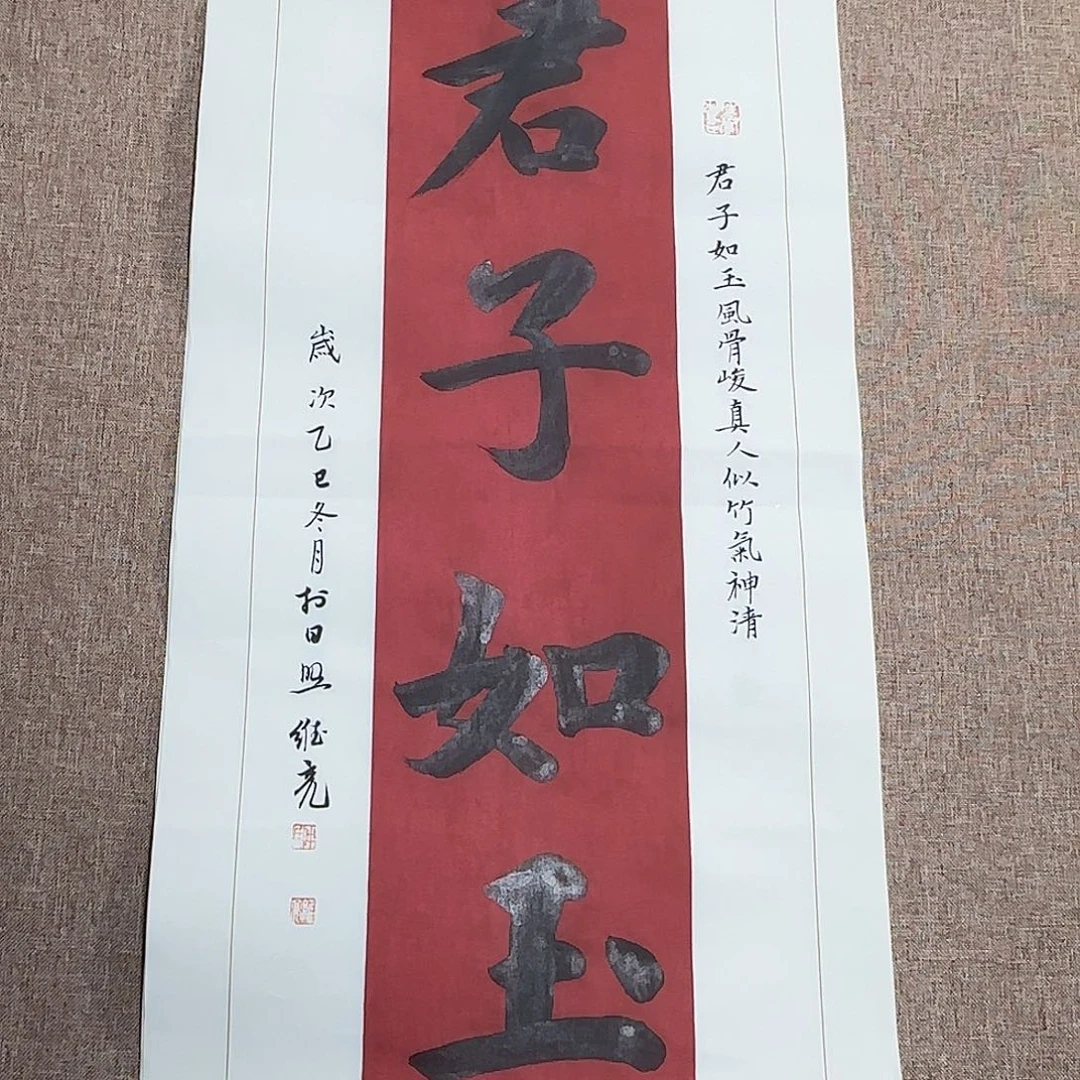 君子如玉風骨峻真人似竹氣神清
君子如玉
歲次乙巳冬月於日照 維亮